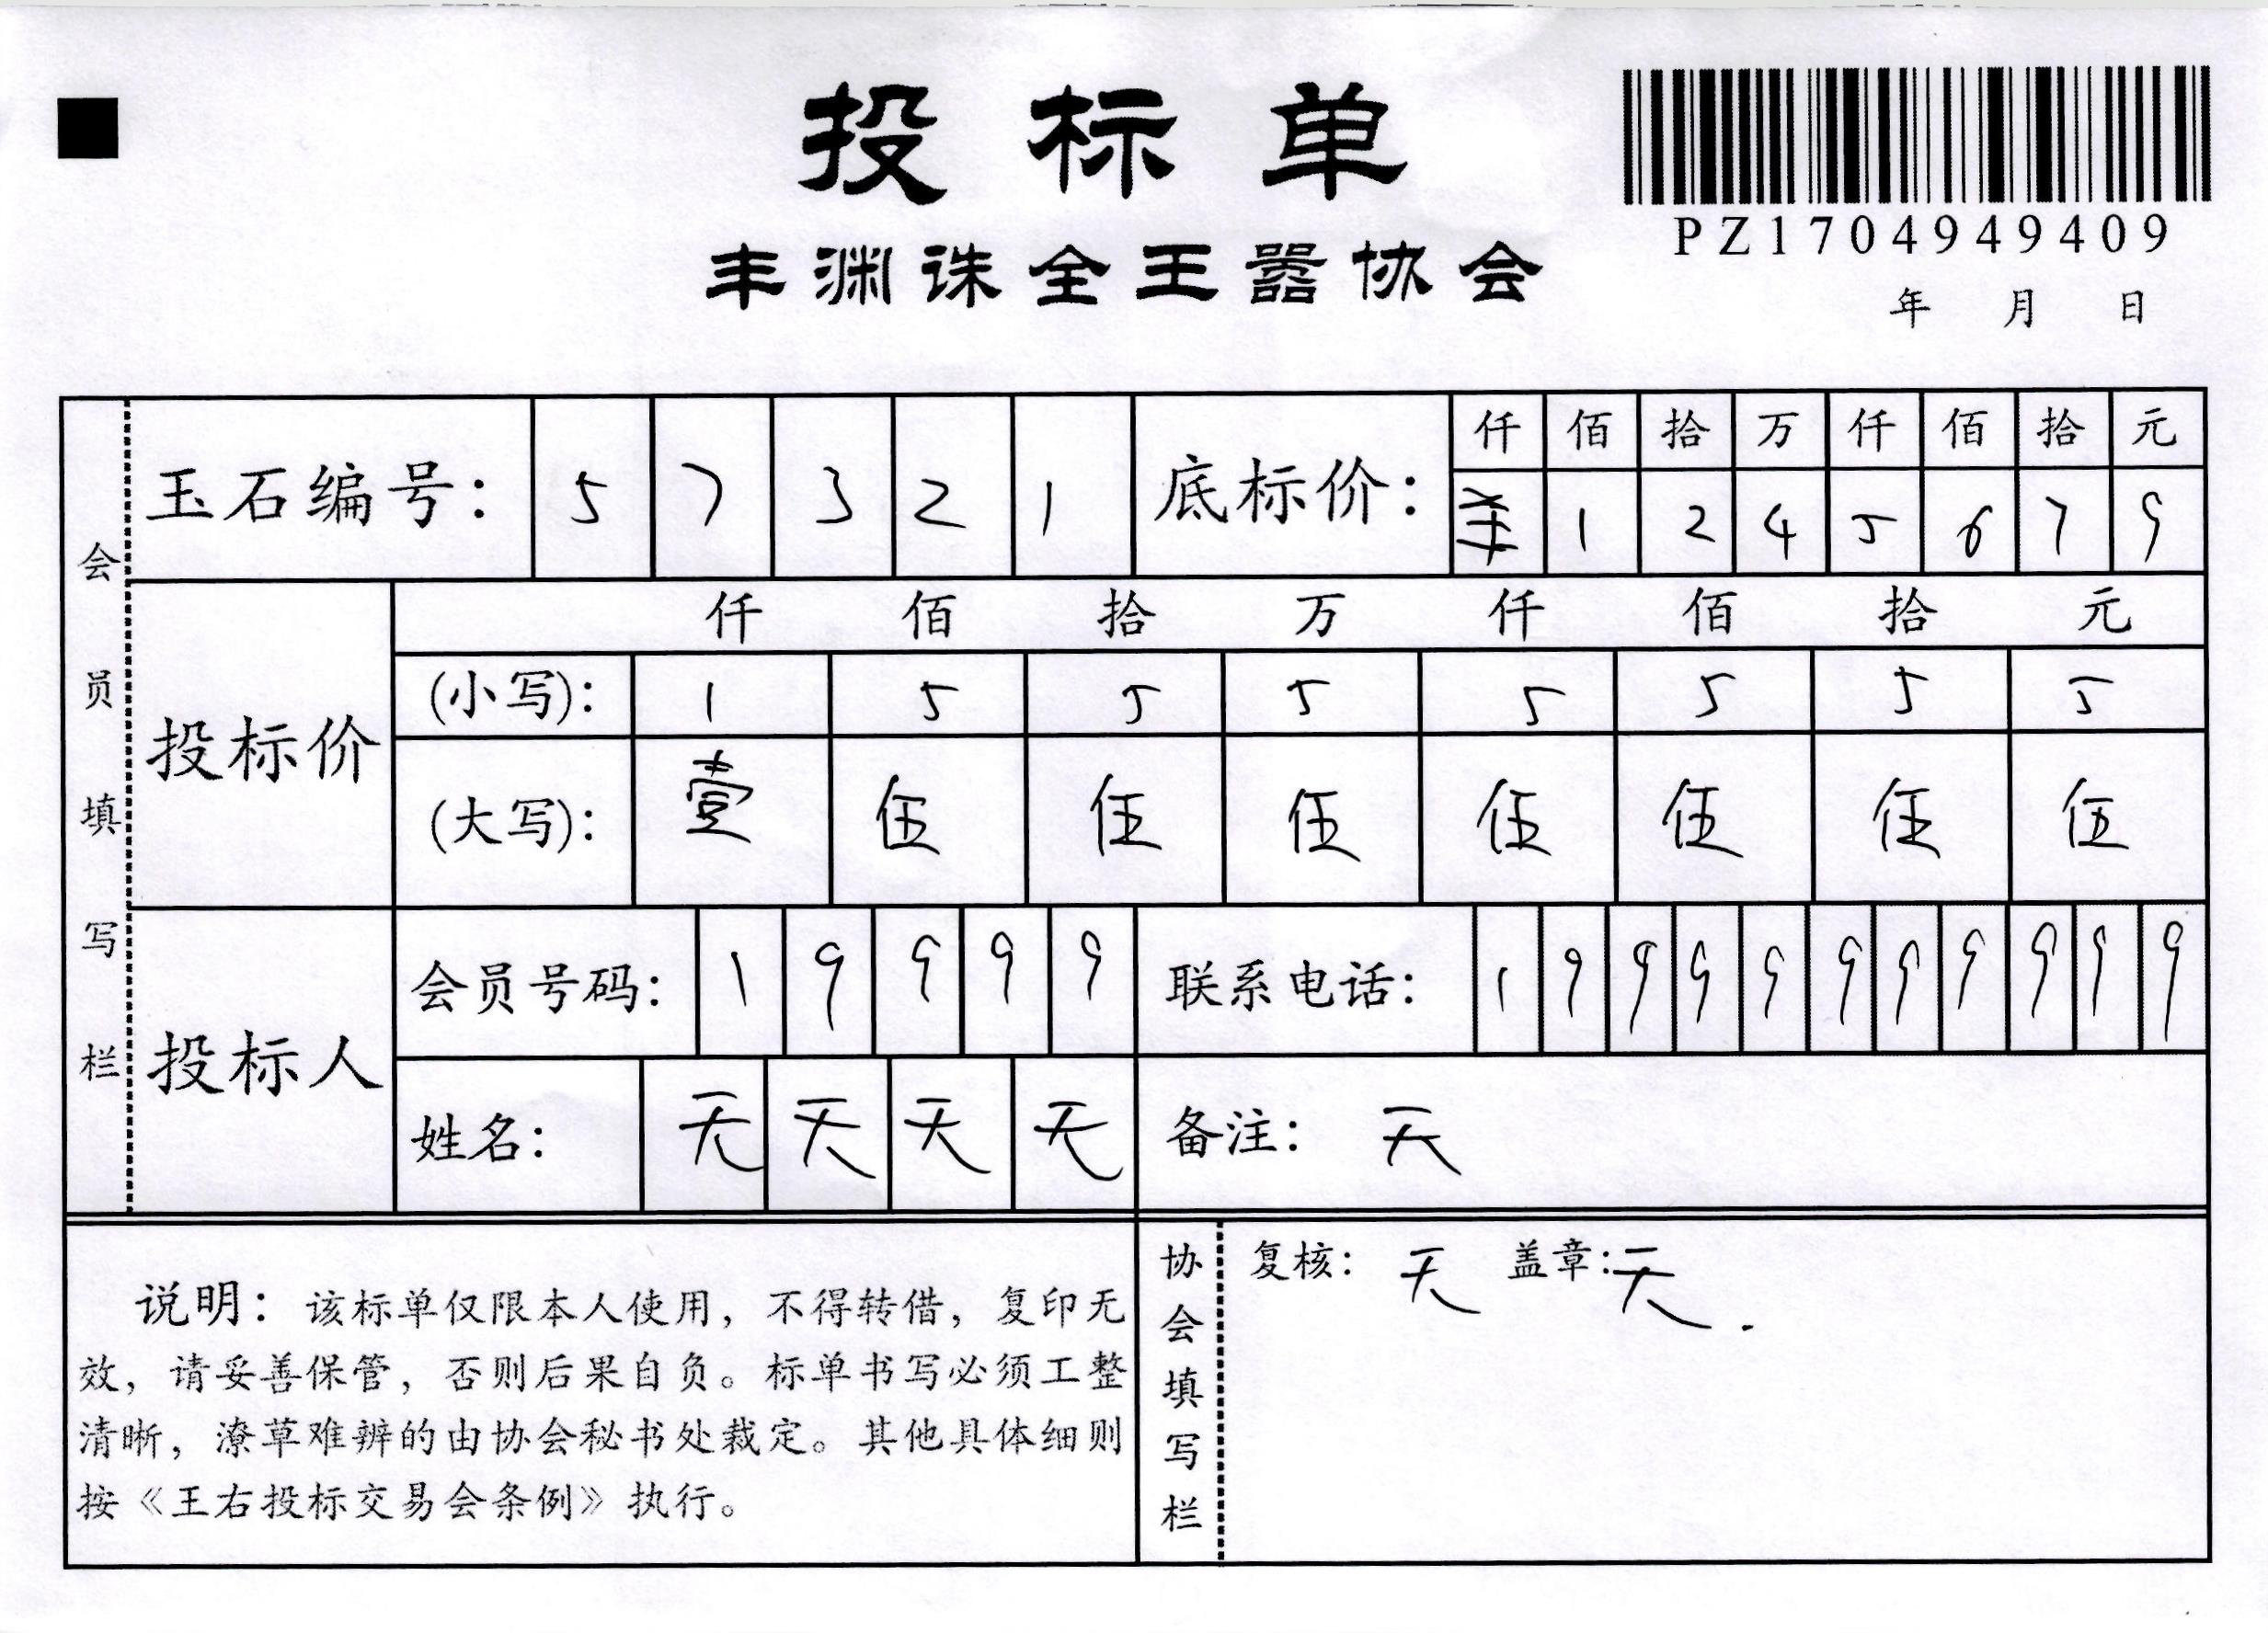 投标单
PZ1704949409
丰渊诛全王嚣协会
年 月 日
会员填写栏
玉石编号： 5 7 3 2 1
底标价：
仟 佰 拾 万 仟 佰 拾 元
1 2 4 5 6 7 9
投标价
仟 佰 拾 万 仟 佰 拾 元
(小写)： 1 5 5 5 5 5 5 5
(大写)： 壹 伍 伍 伍 伍 伍 伍 伍
投标人
会员号码： 1 9 9 9 9
联系电话： 1 9 9 9 9 9 9 9 9 9 9
姓名： 天 天 天 天
备注： 天
说明：该标单仅限本人使用，不得转借，复印无
效，请妥善保管，否则后果自负。标单书写必须工整
清晰，潦草难辨的由协会秘书处裁定。其他具体细则
按《王右投标交易会条例》执行。
协会填写栏
复核： 天 盖章：天.